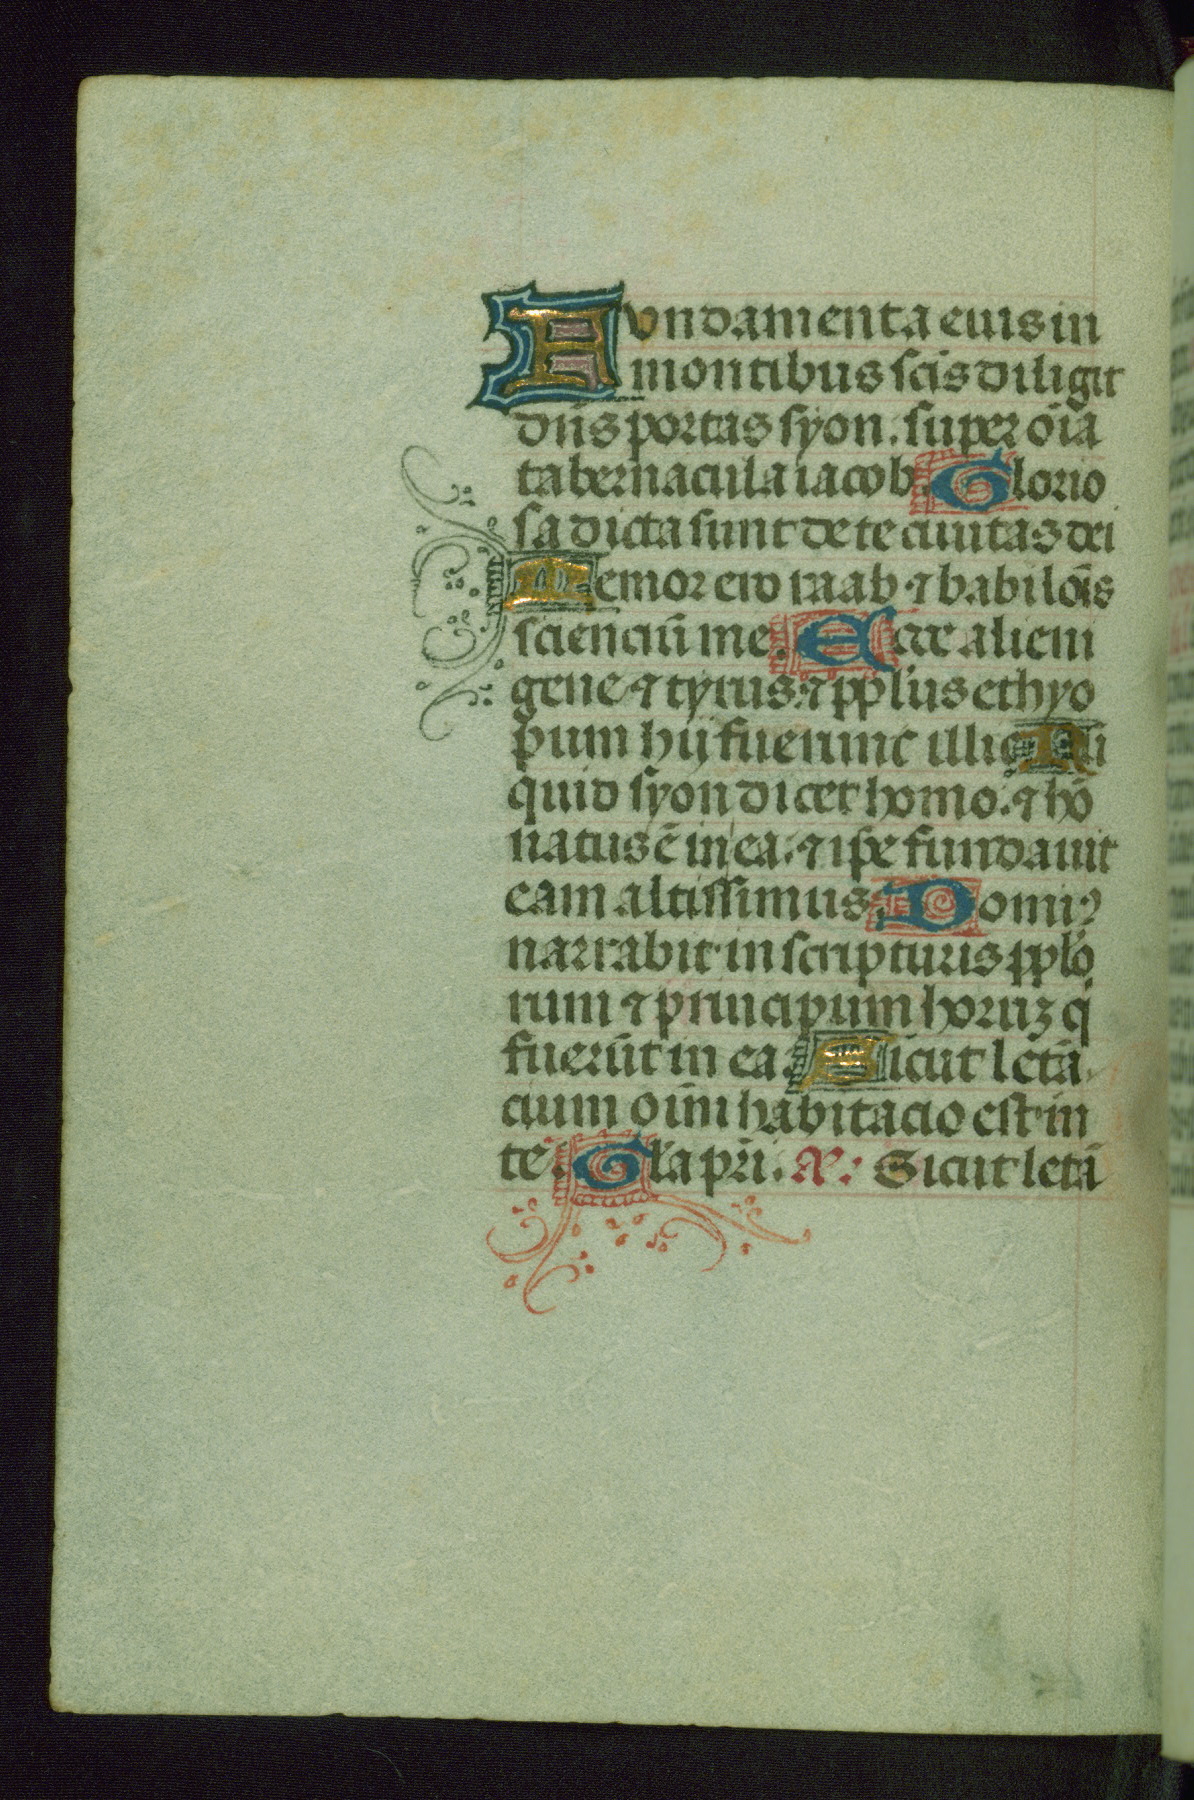 Fundamenta euis in
montibus sc̄is diligit
dn̄s portas syon. super oīa
tabernacula iacob. Glorio
sa dicta sunt de te ciuitas dei
Memor ero raab ⁊ babilōis
scienciū me. Ecce alieni
gene ⁊ tyrus. ⁊ ppl̄us ethyo
pum hij fuerunt illic Nu
quid syon dicet homo. ⁊ hō
natus ē in ea. ⁊ ipse fundauit
eam altissimus. Domiꝰ
narrabit in scripturis ppl̄o
rum ⁊ principum horuꝫ q̄
fuerūt in ea. Sicut letā
cium oīm habitacio est in
te. Gl̄a pr̄i. A: Sicut letā